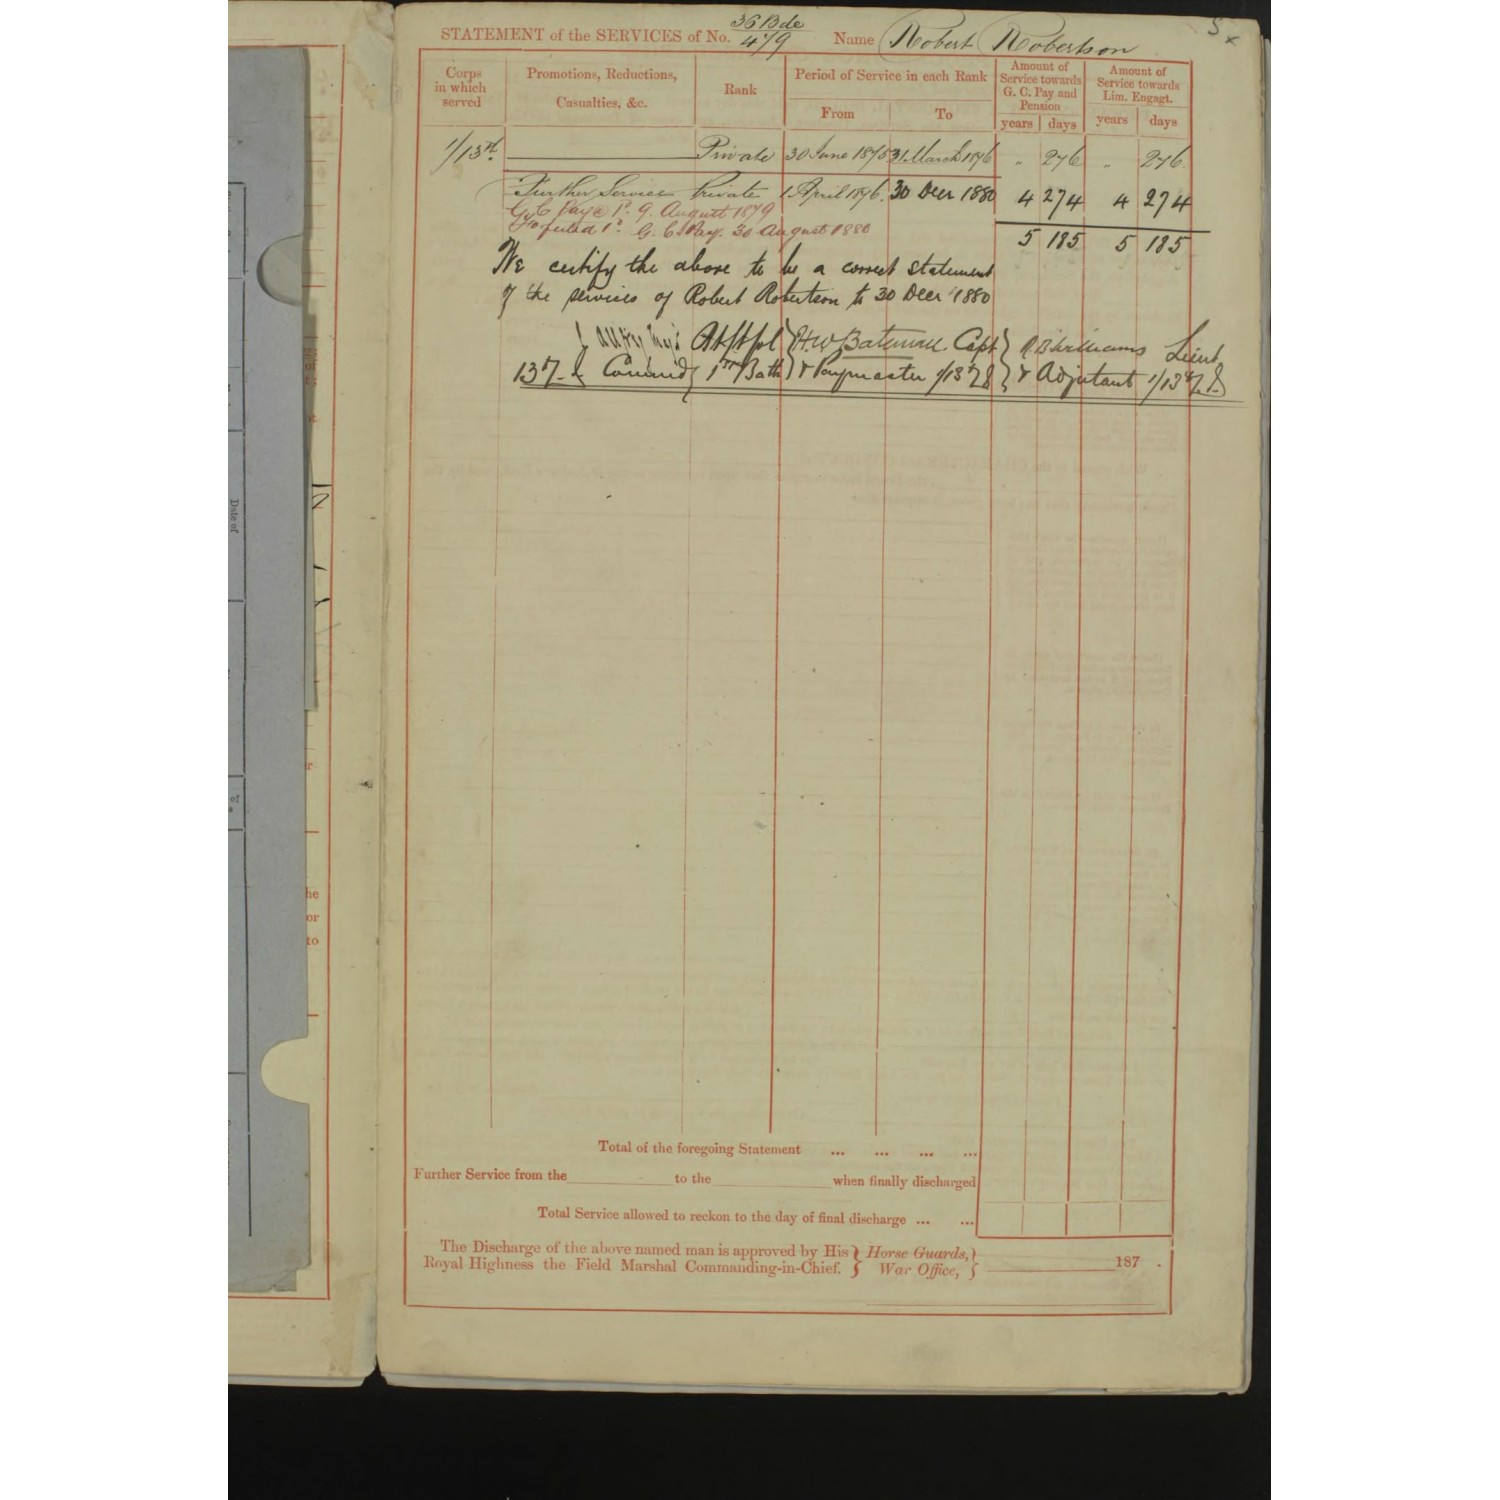 STATEMENT of the SERVICES of No. 36 Bde / 479 Name Robert Robertson
Corps in which served
Promotions, Reductions, Casualties, &c.
Rank
Period of Service in each Rank
From To
Amount of Service towards G. C. Pay and Pension
years days
Amount of Service towards Lim. Engagt.
years days
1/13th. Private 30 June 1875 31 March 1876 " 276 " 276
Further Service Private 1 April 1876. 30 Decr 1880 4 274 4 274
G.C Pay @ 1d. 9. August 1879
Forfeited 1d. G. C. Pay. 30 August 1880
5 185 5 185
We certify the above to be a correct statement
of the services of Robert Robertson to 30 Decr 1880
H.W. Bateman Capt R B Williams Lieut
Comund 1st Battn & Paymaster 1/13th & Adjutant 1/13th
Date of
of
r
he
or
to
Total of the foregoing Statement ... ... ... ...
Further Service from the to the when finally discharged
Total Service allowed to reckon to the day of final discharge ... ...
The Discharge of the above named man is approved by His } Horse Guards, }
Royal Highness the Field Marshal Commanding-in-Chief. } War Office, } 187 .